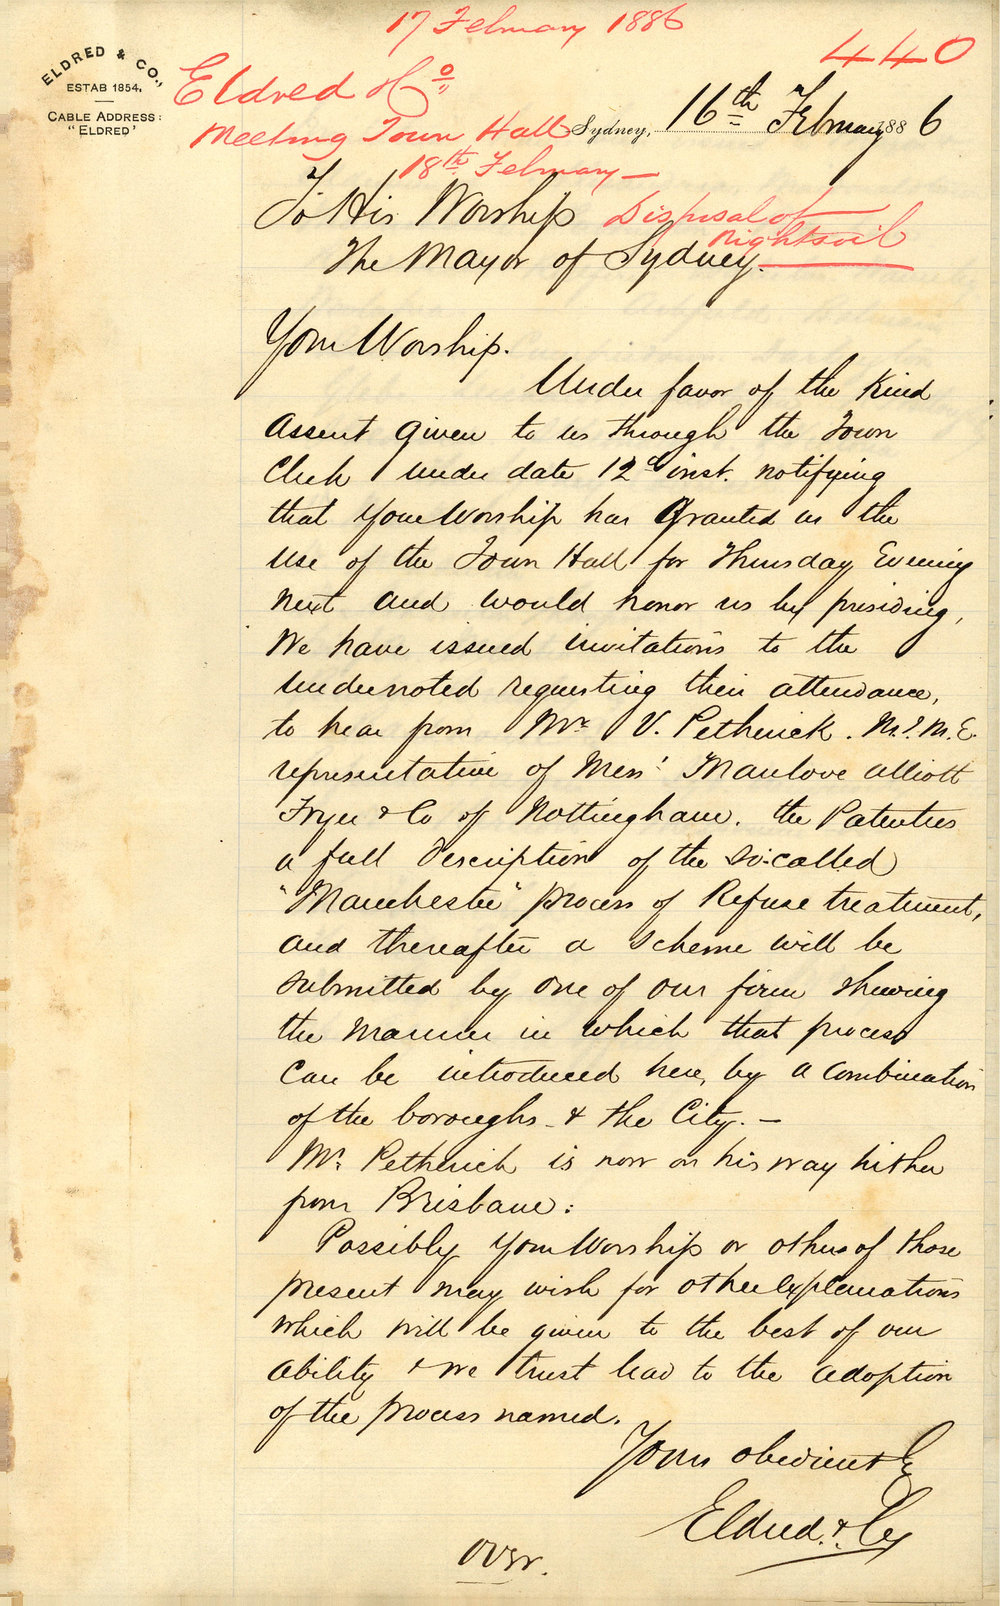 17 February 1886
440
ELDRED & CO.,
ESTAB 1854.
CABLE ADDRESS:
"ELDRED"
Eldred & Co
Meeting Town Hall
18th February —
Disposal of
nightsoil
Sydney, 16th February 1886
To His Worship
The Mayor of Sydney.
Your Worship.
Under favor of the Kind
Assent given to us through the Town
Clerk under date 12th inst. notifying
that Your Worship has Granted us the
use of the Town Hall for Thursday Evening
next and would honor us by presiding,
We have issued invitations to the
undernoted requesting their attendance,
to hear from Mr V. Petherick. M.I.M.E.
representative of Mess's Manlove Alliott
Fryer & Co of Nottingham. the Patentees
a full Description of the so-called
"Manchester" process of Refuse treatment,
and thereafter a scheme will be
submitted by one of our firm shewing
the manner in which that process
can be introduced here, by a combination
of the boroughs & the City. —
Mr. Petherick is now on his way hither
from Brisbane:
Possibly Your Worship or others of those
present may wish for other explanations
which will be given to the best of our
ability & we trust lead to the adoption
of the process named.
Yours obediently
Eldred & Co
OVER.